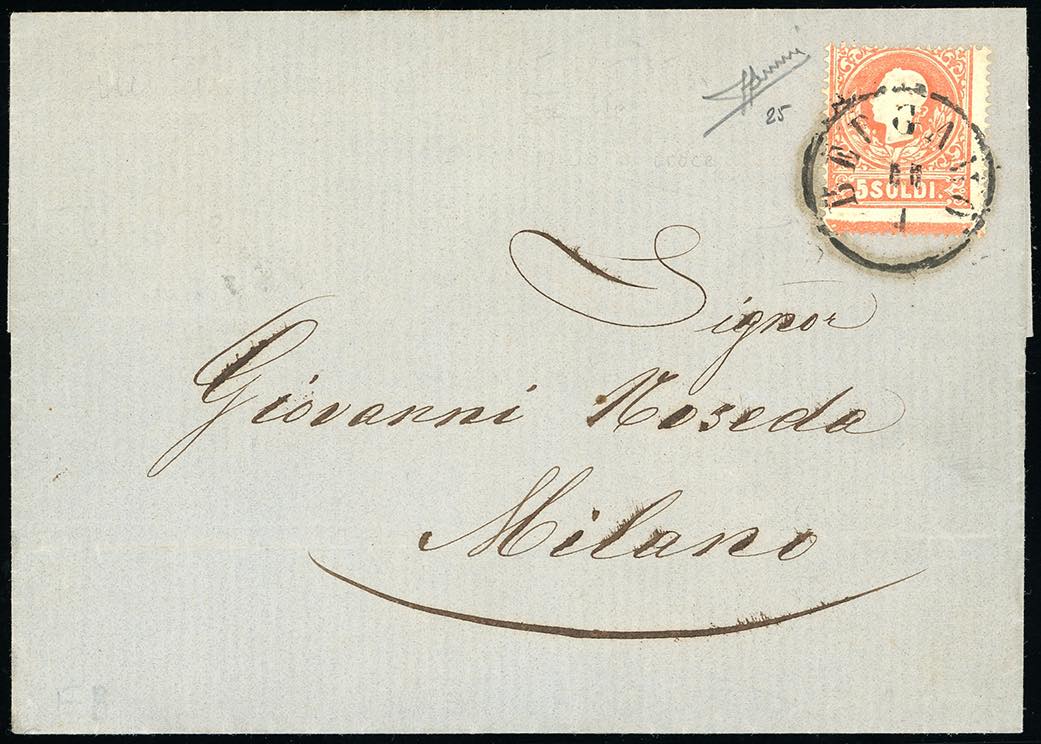 25
5 SOLDI.
BERGAMO
Signor
Giovanni Noseda
Milano